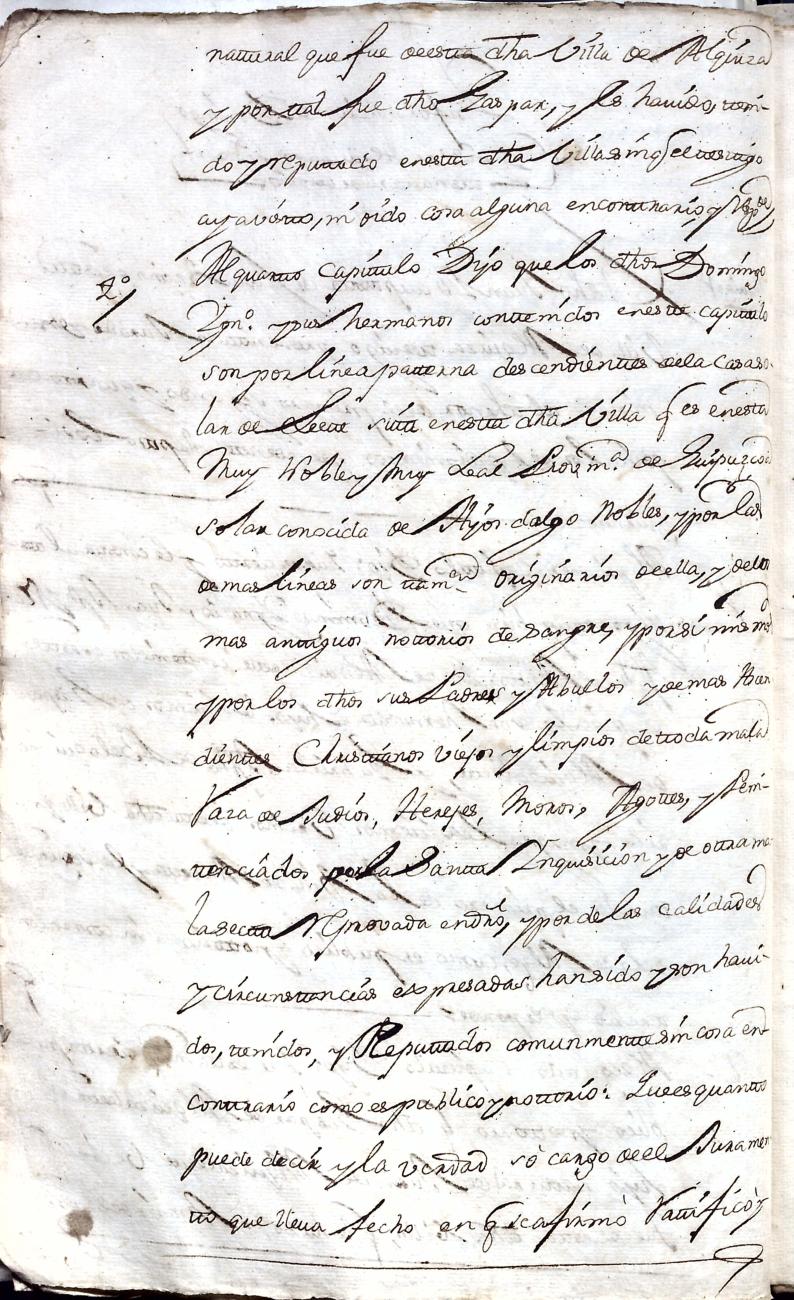 natural que fue de esta dha Villa de Alquiza
y por tal fue dho Gaspar, y es havido, teni-
do y reputado en esta dha Villa sin q el testigo
aya visto, ni oido cosa alguna en contrario, y resp.de
4º Al quarto capitulo Dijo que los dhos Domingo
Ygn.º y sus hermanos contenidos en este capitulo
son por linea paterna descendientes de la Casa so-
lar de Leete sita en esta dha Villa q es en esta
Muy Noble y Muy Leal Provin.a de Guipuzcoa
solar conocida de Hijos dalgo Nobles, y por las
demas lineas son tam.en originarios de ella, y de los
mas antiguos notorios de sangre, y por si mismos
y por los dhos sus Padres y Abuelos y demas Asen
dientes Christianos viejos y limpios de toda mala
Raza de Judios, Herejes, Moros, Agotes, y Peni-
tenciados por la Santa Ynquisicion y de otra ma
la secta reprovada en dro, y por de las calidades
y circunstancias expresadas han sido y son havi-
dos, tenidos, y Reputados comunmente sin cosa en
contrario como es publico y notorio: Que es quanto
puede decir y la verdad so cargo de el Juramen
to que lleva fecho en q se afirmò Ratificò y